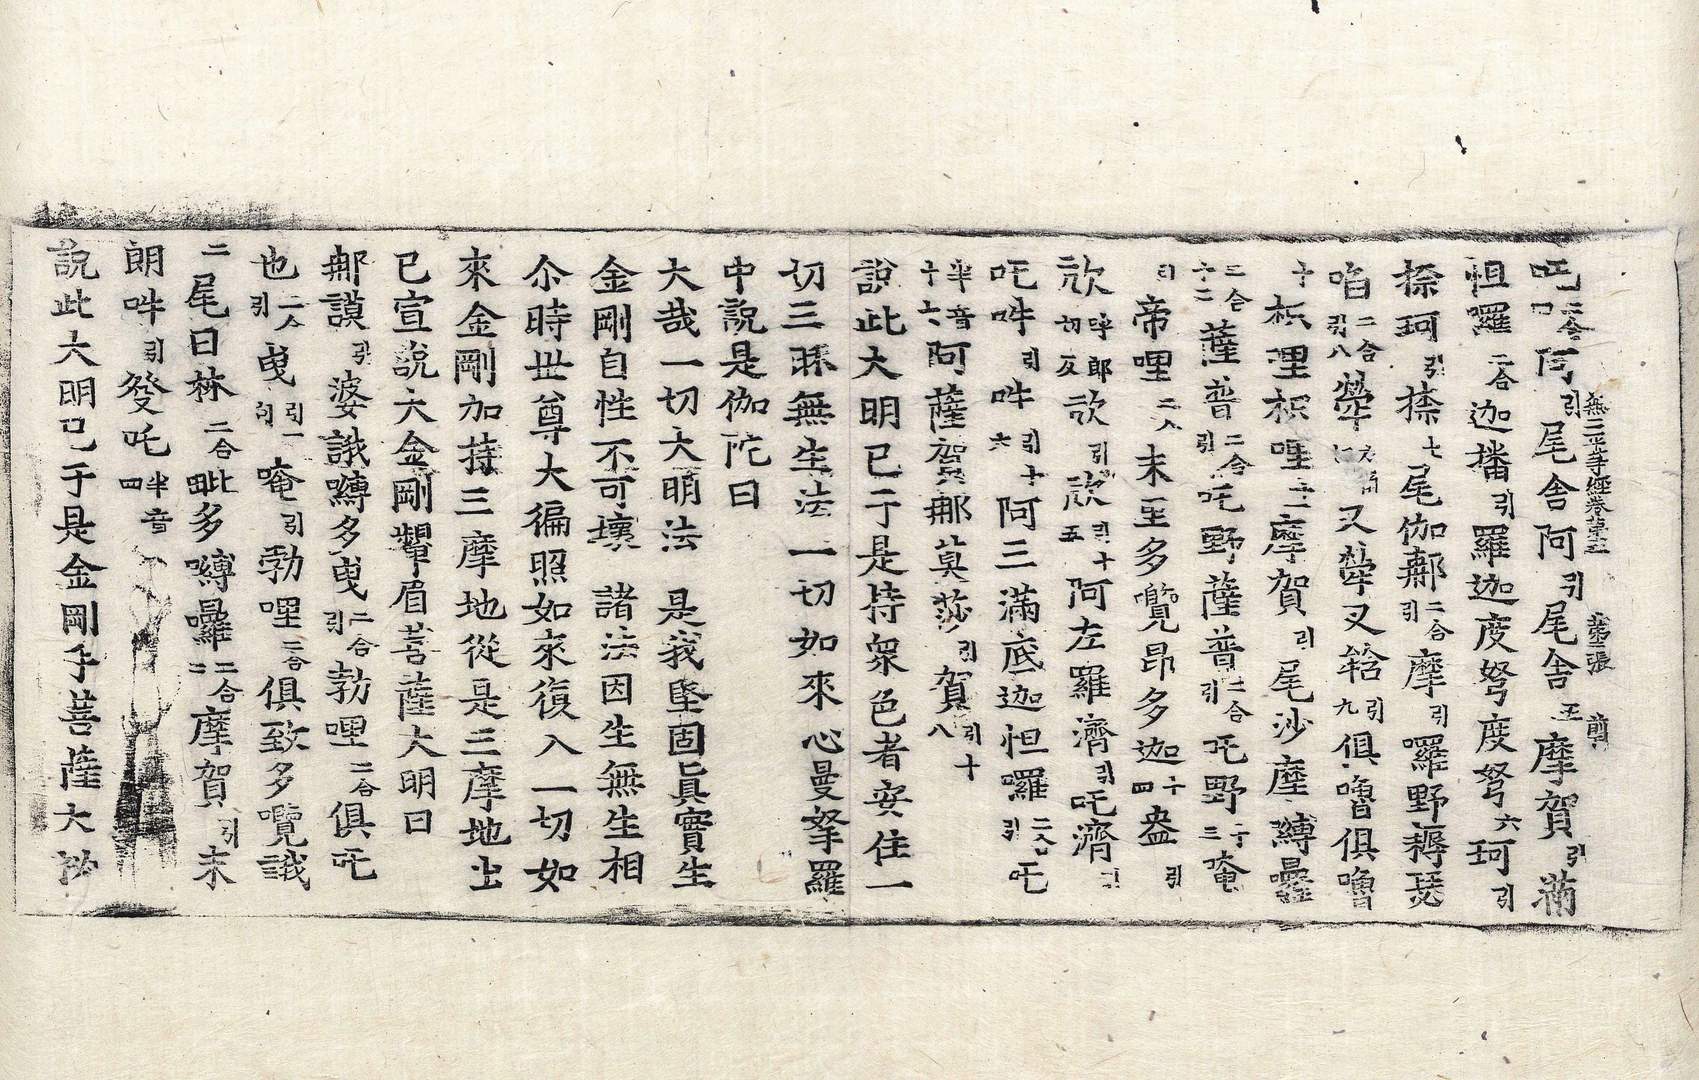 無二平等經卷第三　第三張　前
吒吽二合阿引尾舍阿引尾舍五摩賀引滿
怛囉二合迦播引羅迦度弩度弩六珂引
捺珂引捺七尾伽鄔二合引摩引囉野耨瑟
啗二合引八犖叉犖叉頦引九俱嚕俱嚕
十枳哩枳哩十一摩賀引尾沙摩嚩曩
二合十二薩普二合引吒野薩普二合引吒野十三唵
引帝哩二合末里多囕昂多迦十四盎引
欱呼郎切反欱引欱引十五阿左羅濟引吒濟引
吒吽引吽引十六阿三滿底迦怛囉二合引吒
半音十六阿薩賀那莫莎引賀引十八
說此大明已于是持眾色者安住一
切三昧無生法一切如來心曼拏羅
中說是伽陀曰
大哉一切大明法　是我堅固眞實生
金剛自性不可壞　諸法因生無生相
尒時世尊大徧照如來復入一切如
來金剛加持三摩地從是三摩地出
已宣說大金剛顰眉菩薩大明曰
那謨引婆誐嚩多曳二合引勃哩二合俱吒
也二合引曳引一句唵引勃哩二合俱致多囕誐
二尾日林二合毗多嚩曩二合三摩賀引末
朗吽引發吒半音四
說此大明已于是金剛手菩薩大祕